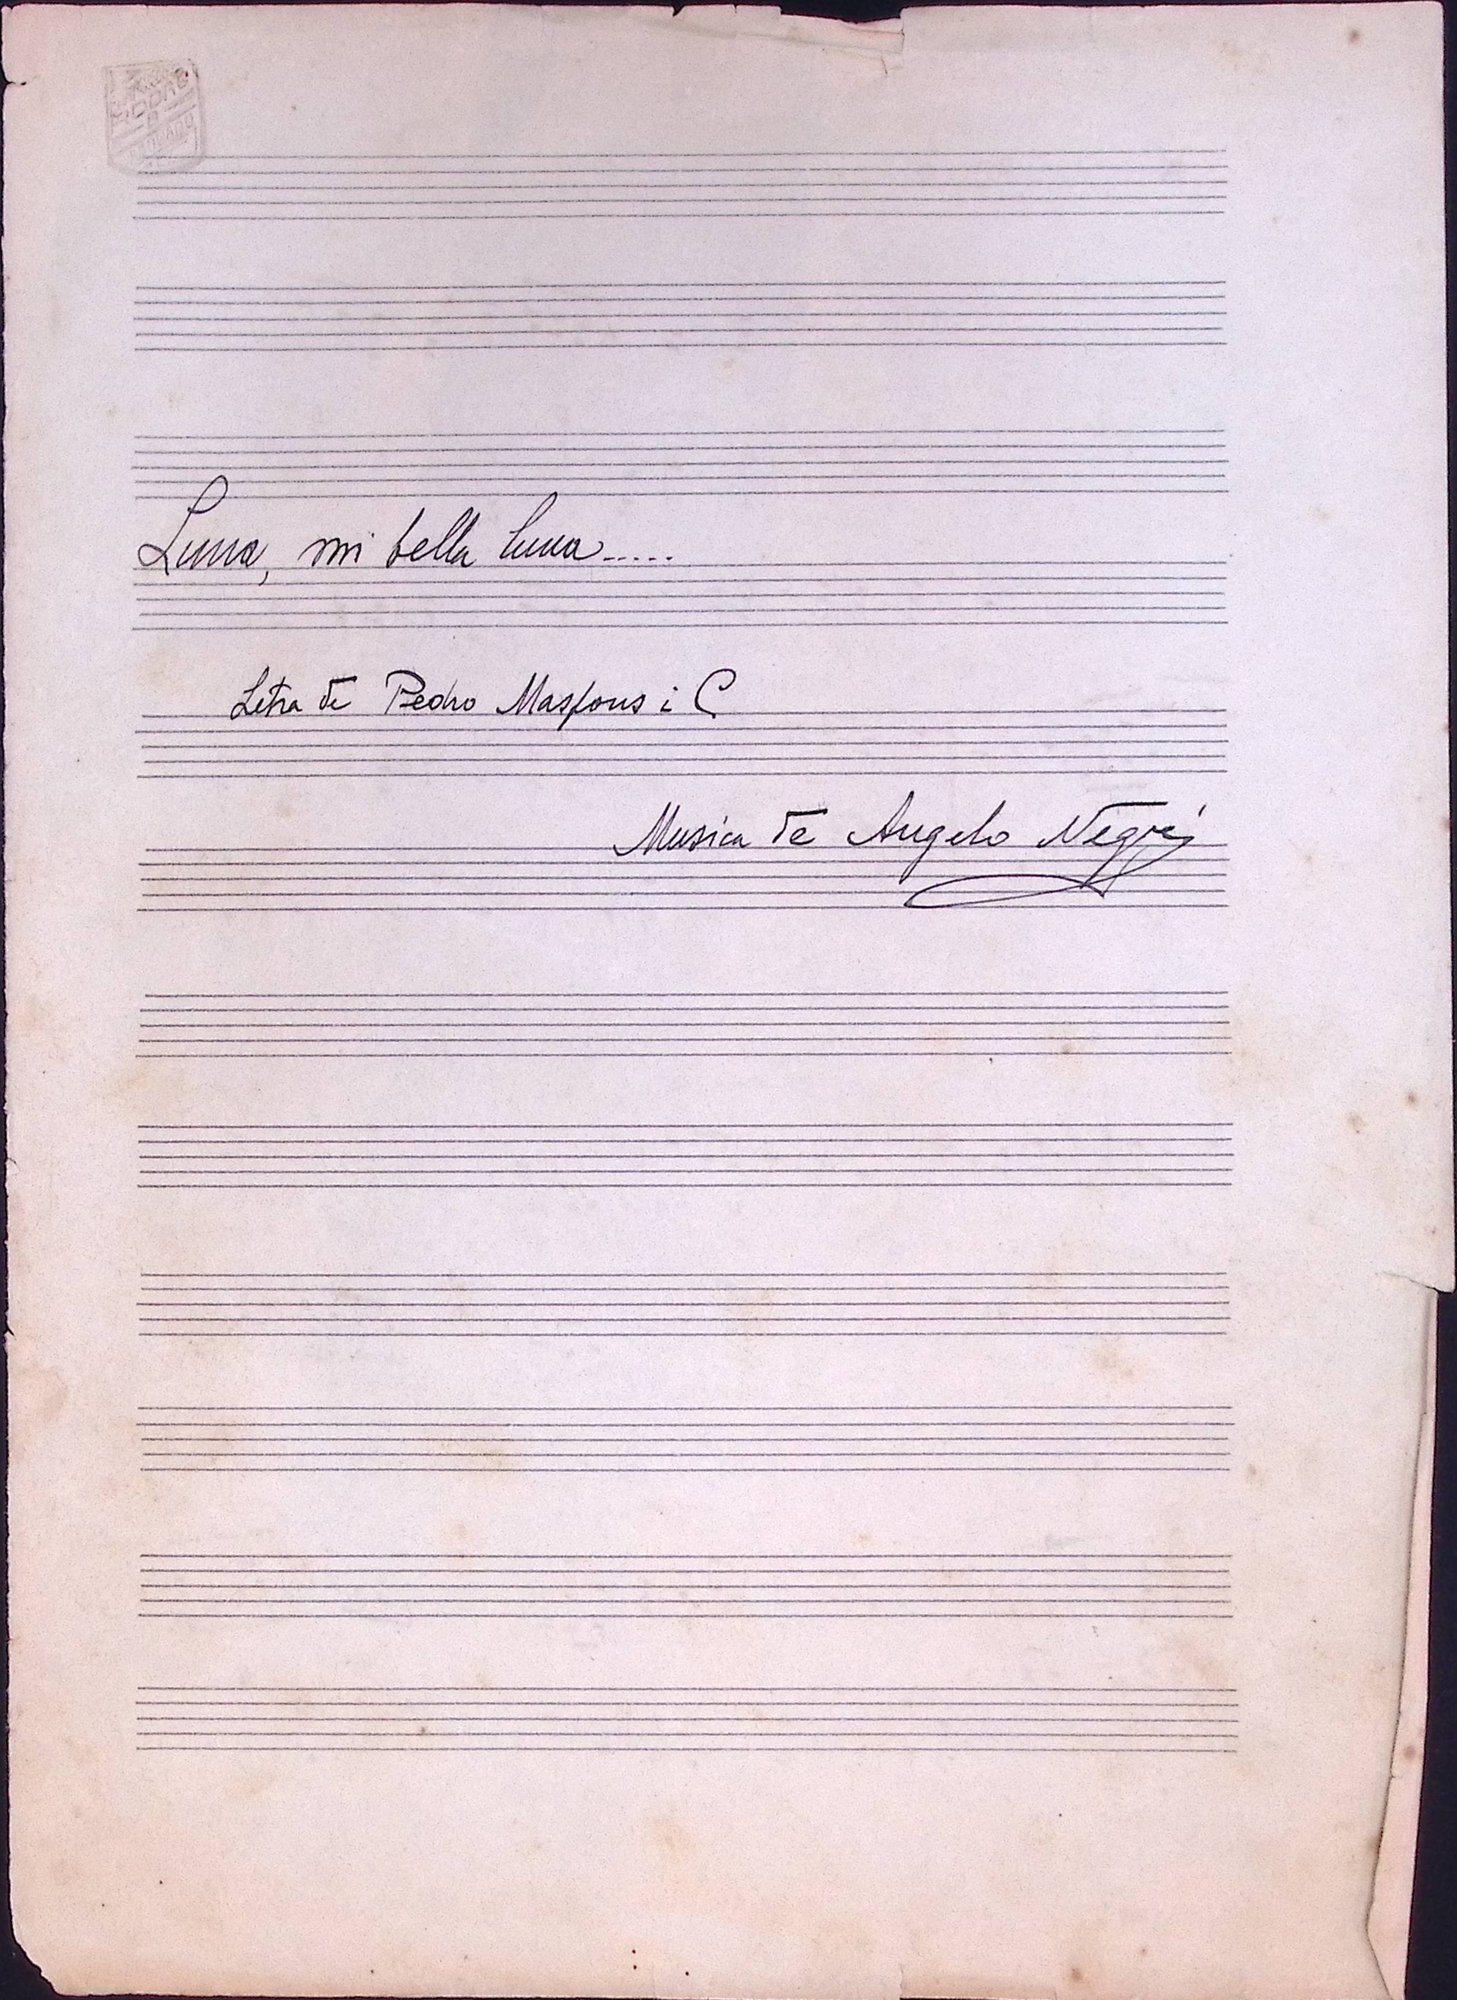 Luna, mi bella luna.....
Letra de Pedro Masfons i C
Musica de Angelo Negri